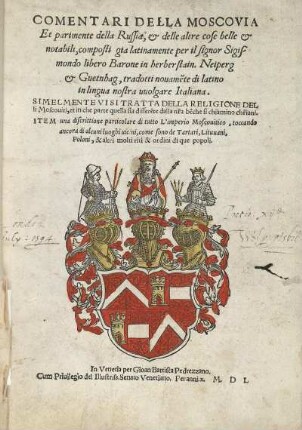 COMENTARI DELLA MOSCOVIA
Et parimente della Russia, & delle altre cose belle &
notabili, composti gia latinamente per il signor Sigis-
mondo libero Barone in herberstain. Neiperg
& Guetnhag, tradotti novamēte di latino
in lingua nostra vuolgare Italiana.
SIMELMENTE VI SI TRATTA DELLA RELIGIONE DEL
li Moscoviti, et in che parte quella sia differente dalla nr̄a bēche si chiamino christiani.
ITEM una discrittione particulare di tutto L'imperio Moscovitico, toccando
ancora di alcuni luoghi vicini, come sono de Tartari, Lituuani,
Poloni, & altri molti riti & ordini di que popoli.
July · 1594
In Venetia per Gioan Battista Pedrezzano.
Cum Privilegio del Illustriss. Senato Venetiano. Per anni.x. M. D L